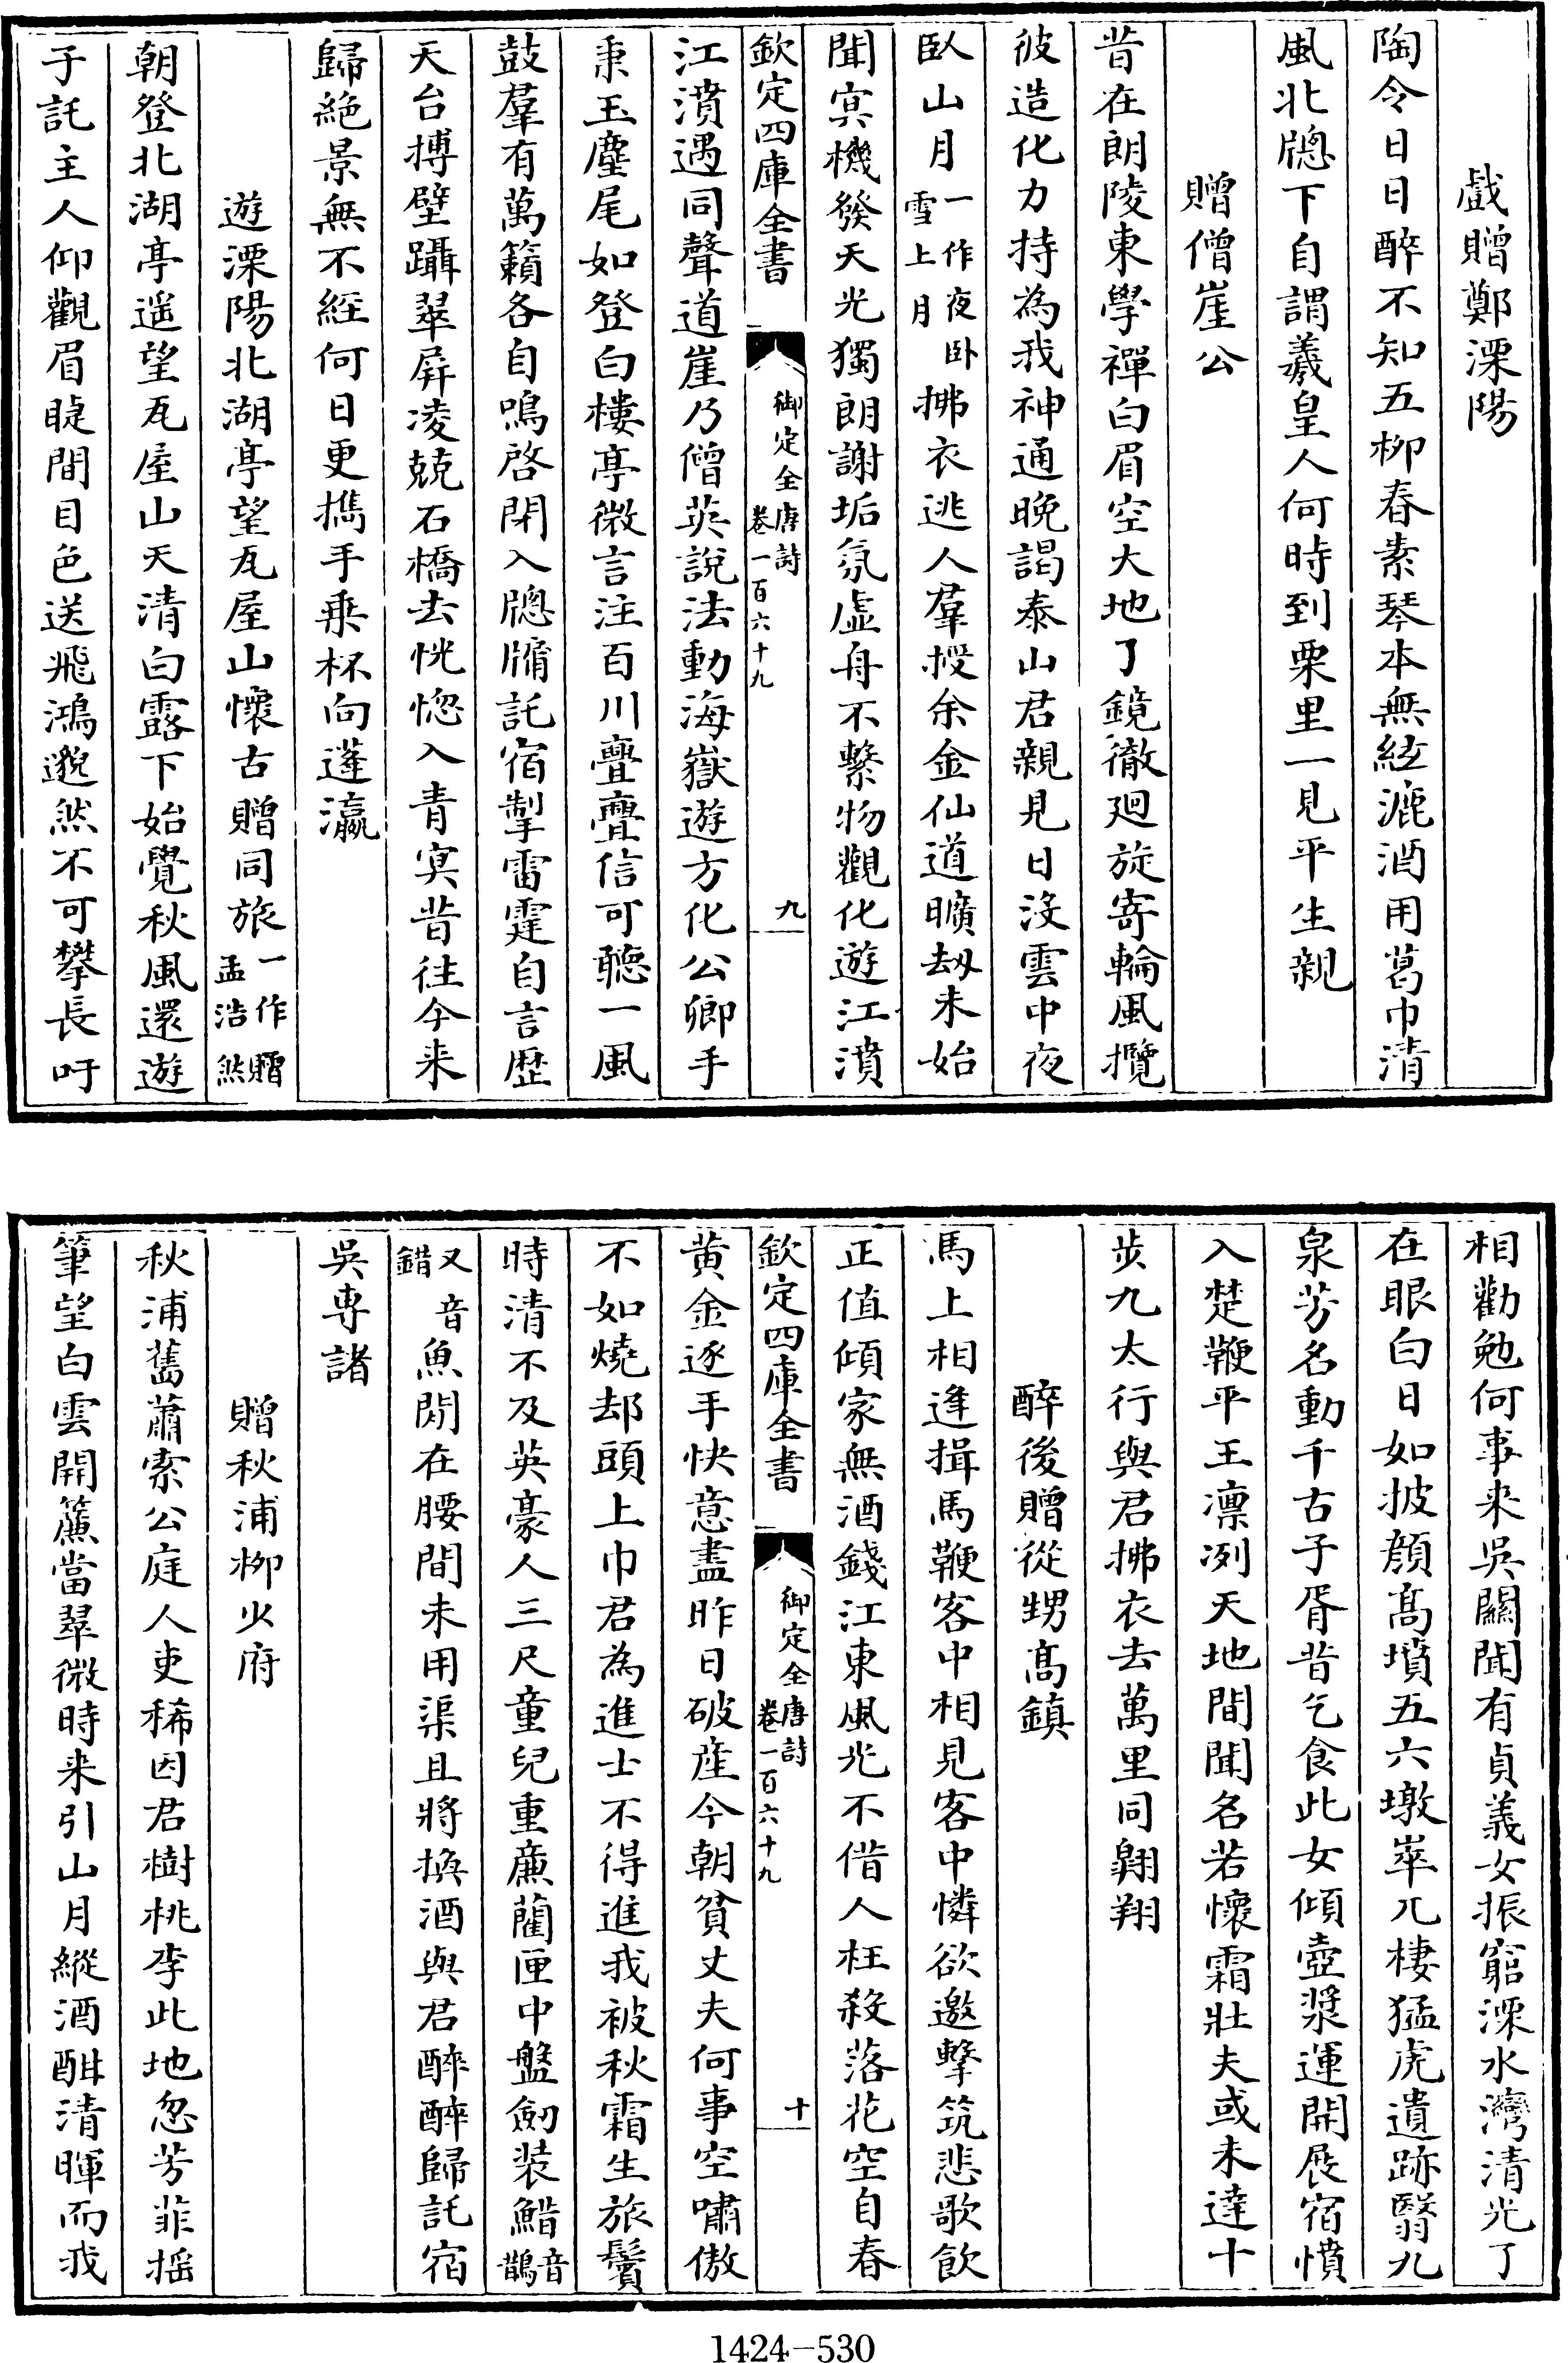 戲贈鄭溧陽
陶令日日醉不知五柳春素琴本無絃漉酒用葛巾清
風北牕下自謂羲皇人何時到栗里一見平生親
贈僧崖公
昔在朗陵東學禪白眉空大地了鏡徹廻旋寄輪風攬
彼造化力持為我神通晚謁泰山君親見日沒雲中夜
臥山月一作夜卧雪上月拂衣逃人羣授余金仙道曠劫未始
聞冥機發天光獨朗謝垢氛虛舟不繫物觀化遊江濆
欽定四庫全書
御定全唐詩
卷一百六十九
九
江濆遇同聲道崖乃僧英說法動海嶽遊方化公卿手
秉玉麈尾如登白樓亭微言注百川亹亹信可聽一風
鼓羣有萬籟各自鳴啓閉入牕牖託宿掣雷霆自言歴
天台搏壁躡翠屏凌兢石橋去恍惚入青冥昔往今来
歸絶景無不經何日更攜手乗杯向蓬瀛
遊溧陽北湖亭望瓦屋山懷古贈同旅一作贈孟浩然
朝登北湖亭遥望瓦屋山天清白露下始覺秋風還遊
子託主人仰觀眉睫間目色送飛鴻邈然不可攀長吁
相勸勉何事来吳關聞有貞義女振窮溧水灣清光了
在眼白日如披顔髙墳五六墩崒兀棲猛虎遺跡翳九
泉芳名動千古子胥昔乞食此女傾壺漿運開展宿憤
入楚鞭平王凛冽天地間聞名若懷霜壯夫或未達十
步九太行與君拂衣去萬里同翺翔
醉後贈從甥髙鎮
馬上相逢揖馬鞭客中相見客中憐欲邀擊筑悲歌飲
正值傾家無酒錢江東風光不借人枉殺落花空自春
欽定四庫全書
御定全唐詩
卷一百六十九
十
黄金逐手快意盡昨日破産今朝貧丈夫何事空嘯傲
不如燒却頭上巾君為進士不得進我被秋霜生旅鬢
時清不及英豪人三尺童兒重亷藺匣中盤劒装䱜音鵲
又音錯魚閒在腰間未用渠且將換酒與君醉醉歸託宿
吳専諸
贈秋浦栁少府
秋浦舊蕭索公庭人吏稀因君樹桃李此地忽芳菲揺
筆望白雲開簾當翠微時来引山月縱酒酣清暉而我
1424-530